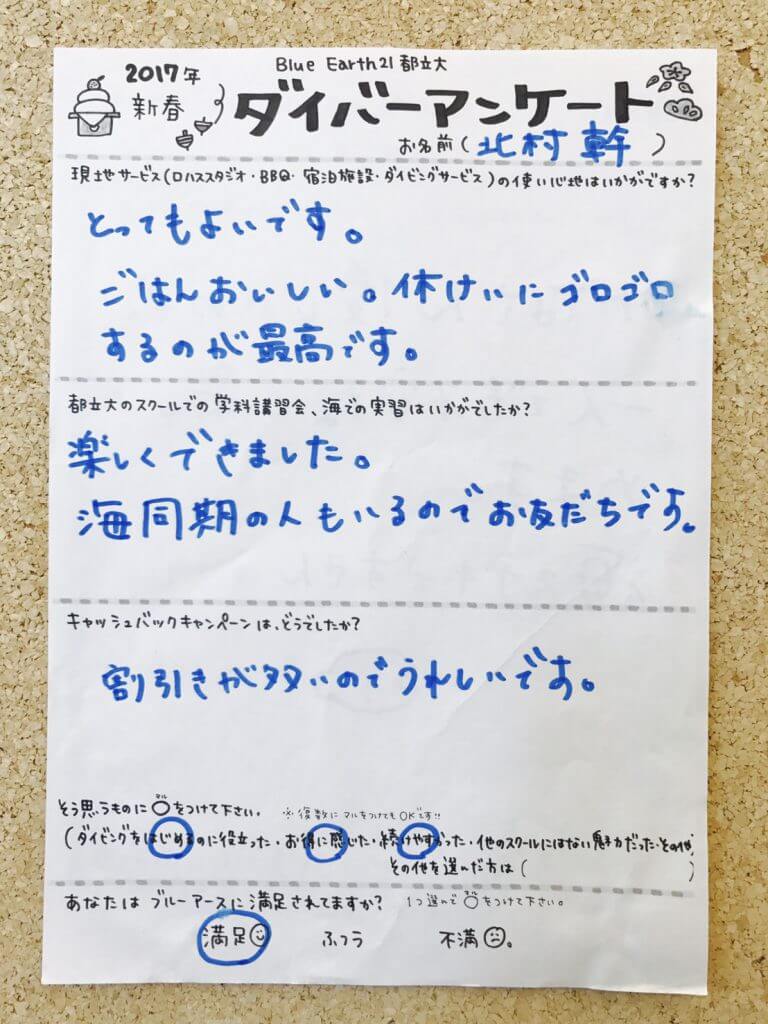 Blue Earth21 都立大
2017年
新春
ダイバーアンケート
お名前(北村 幹)
現地サービス(ロハススタジオ・BBQ・宿泊施設・ダイビングサービス)の使い心地はいかがですか?
とってもよいです。
ごはんおいしい。休けいにゴロゴロ
するのが最高です。
都立大のスクールでの学科講習会、海での実習はいかがでしたか?
楽しくできました。
海同期の人もいるのでお友だちです。
キャッシュバックキャンペーンは、どうでしたか?
割引きが多いのでうれしいです。
そう思うものに○マルをつけて下さい。 ※複数にマルをつけてもOKです!!
(ダイビングをはじめるのに役立った・お得に感じた・続けやすかった・他のスクールにはない魅力だった・その他)
その他を選んだ方は( )
あなたはブルーアースに満足されてますか? 1つ選んで○マルをつけて下さい。
満足 ふつう 不満。